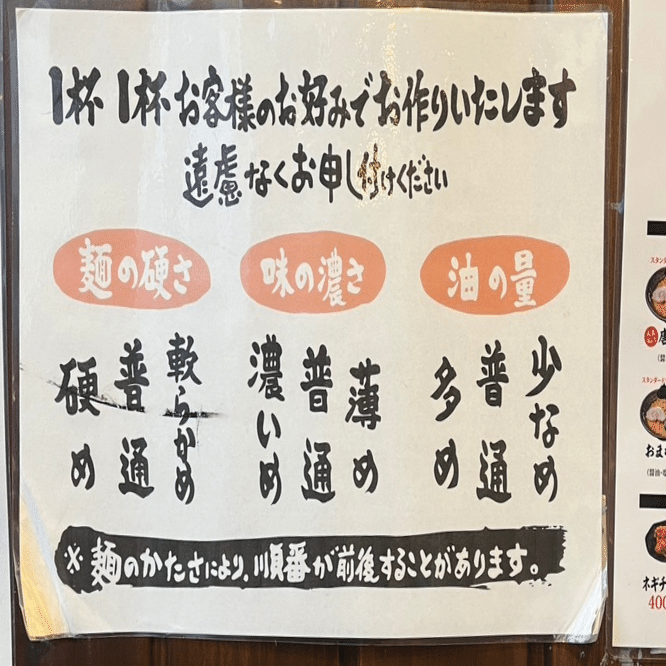 1杯1杯お客様のお好みでお作りいたします
遠慮なくお申し付けください
麺の硬さ
軟らかめ
普通
硬め
味の濃さ
薄め
普通
濃いめ
油の量
少なめ
普通
多め
※麺のかたさにより、順番が前後することがあります。
スタンダード
おま
ネギチ
400